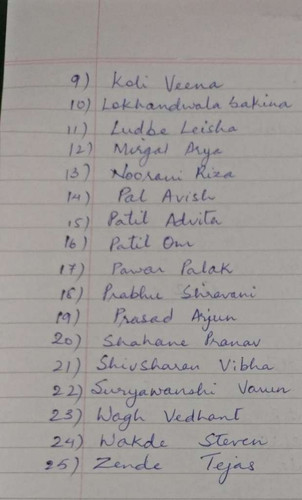 9) Koli Veena
10) Lokhandwala Sakina
11) Ludbe Leisha
12) Mirgal Arya
13) Noorani Riza
14) Pal Avish
15) Patil Advita
16) Patil Om
17) Pawar Palak
18) Prabhu Shravani
19) Prasad Arjun
20) Shahane Pranav
21) Shivsharan Vibha
22) Suryawanshi Varun
23) Wagh Vedhant
24) Wakde Steven
25) Zende Tejas